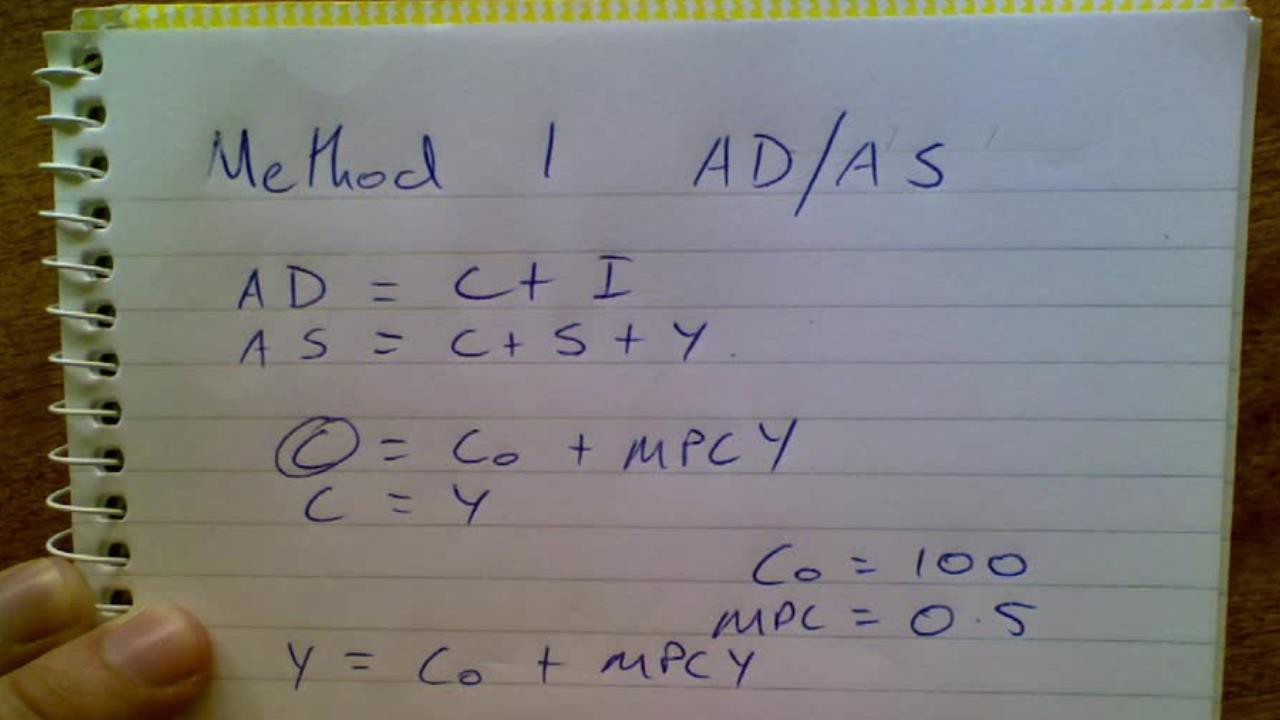 Method 1 AD/AS
AD = C + I
AS = C + S + Y.
C = Co + MPCY
C = Y
Co = 100
MPC = 0.5
Y = Co + MPCY